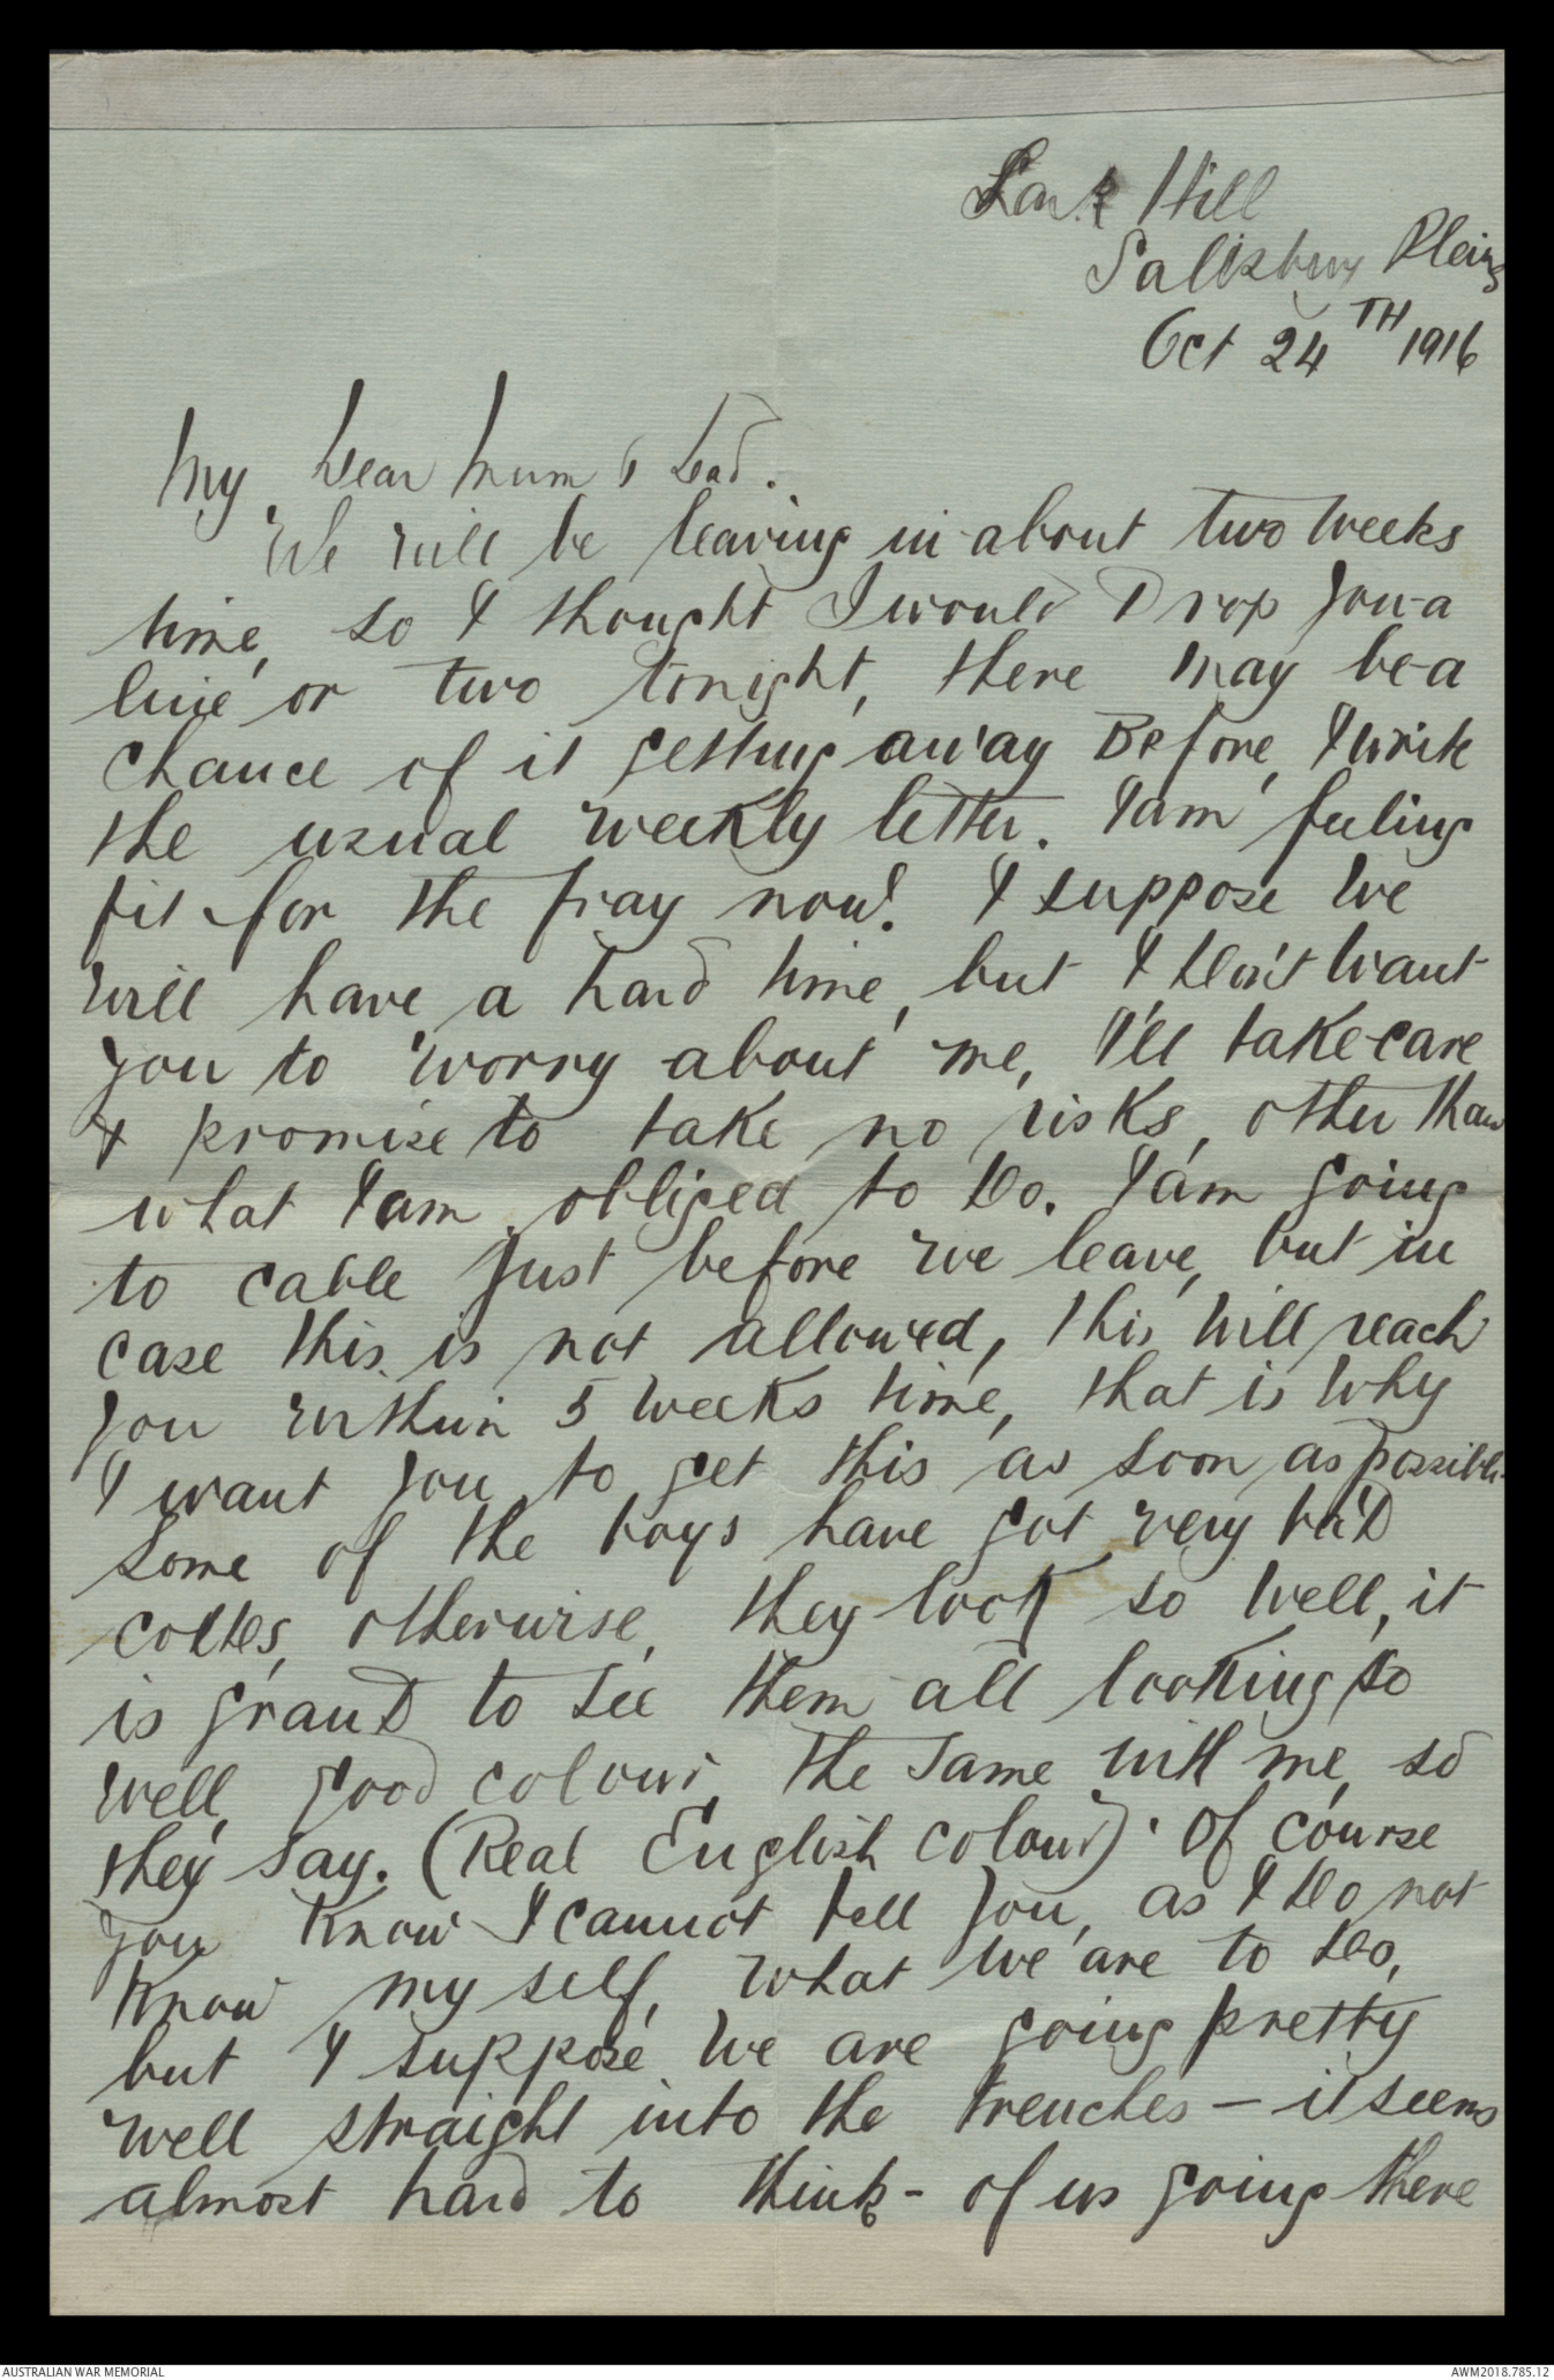 Lark Hill
Salisbury Plains
Oct 24TH 1916
My Dear Mum & Dad.
We will be leaving in about two weeks
time, so I thought I would Drop you a
line or two tonight, there may be a
chance of it getting away Before, I write
the usual weekly letter. I am feeling
fit for the fray now! I suppose we
will have a hard time, but I Don't want
you to worry about me, I'll take care
& promise to take no risks, other than
what I am obliged to Do. I am going
to cable just before we leave, but in
case this is not allowed, this will reach
you within 5 weeks time, that is why
I want you to get this as soon as possible.
Some of the boys have got very baD
colDes, otherwise, they look so well, it
is granD to see them all looking so
well, good colour, the same with me, so
they say. (Real English colour). Of course
you Know I cannot tell you, as I Do not
Know my self, what we are to Do,
but I suppose we are going pretty
well straight into the trenches – it seems
almost hard to think - of us going there
AUSTRALIAN WAR MEMORIAL
AWM2018.785.12